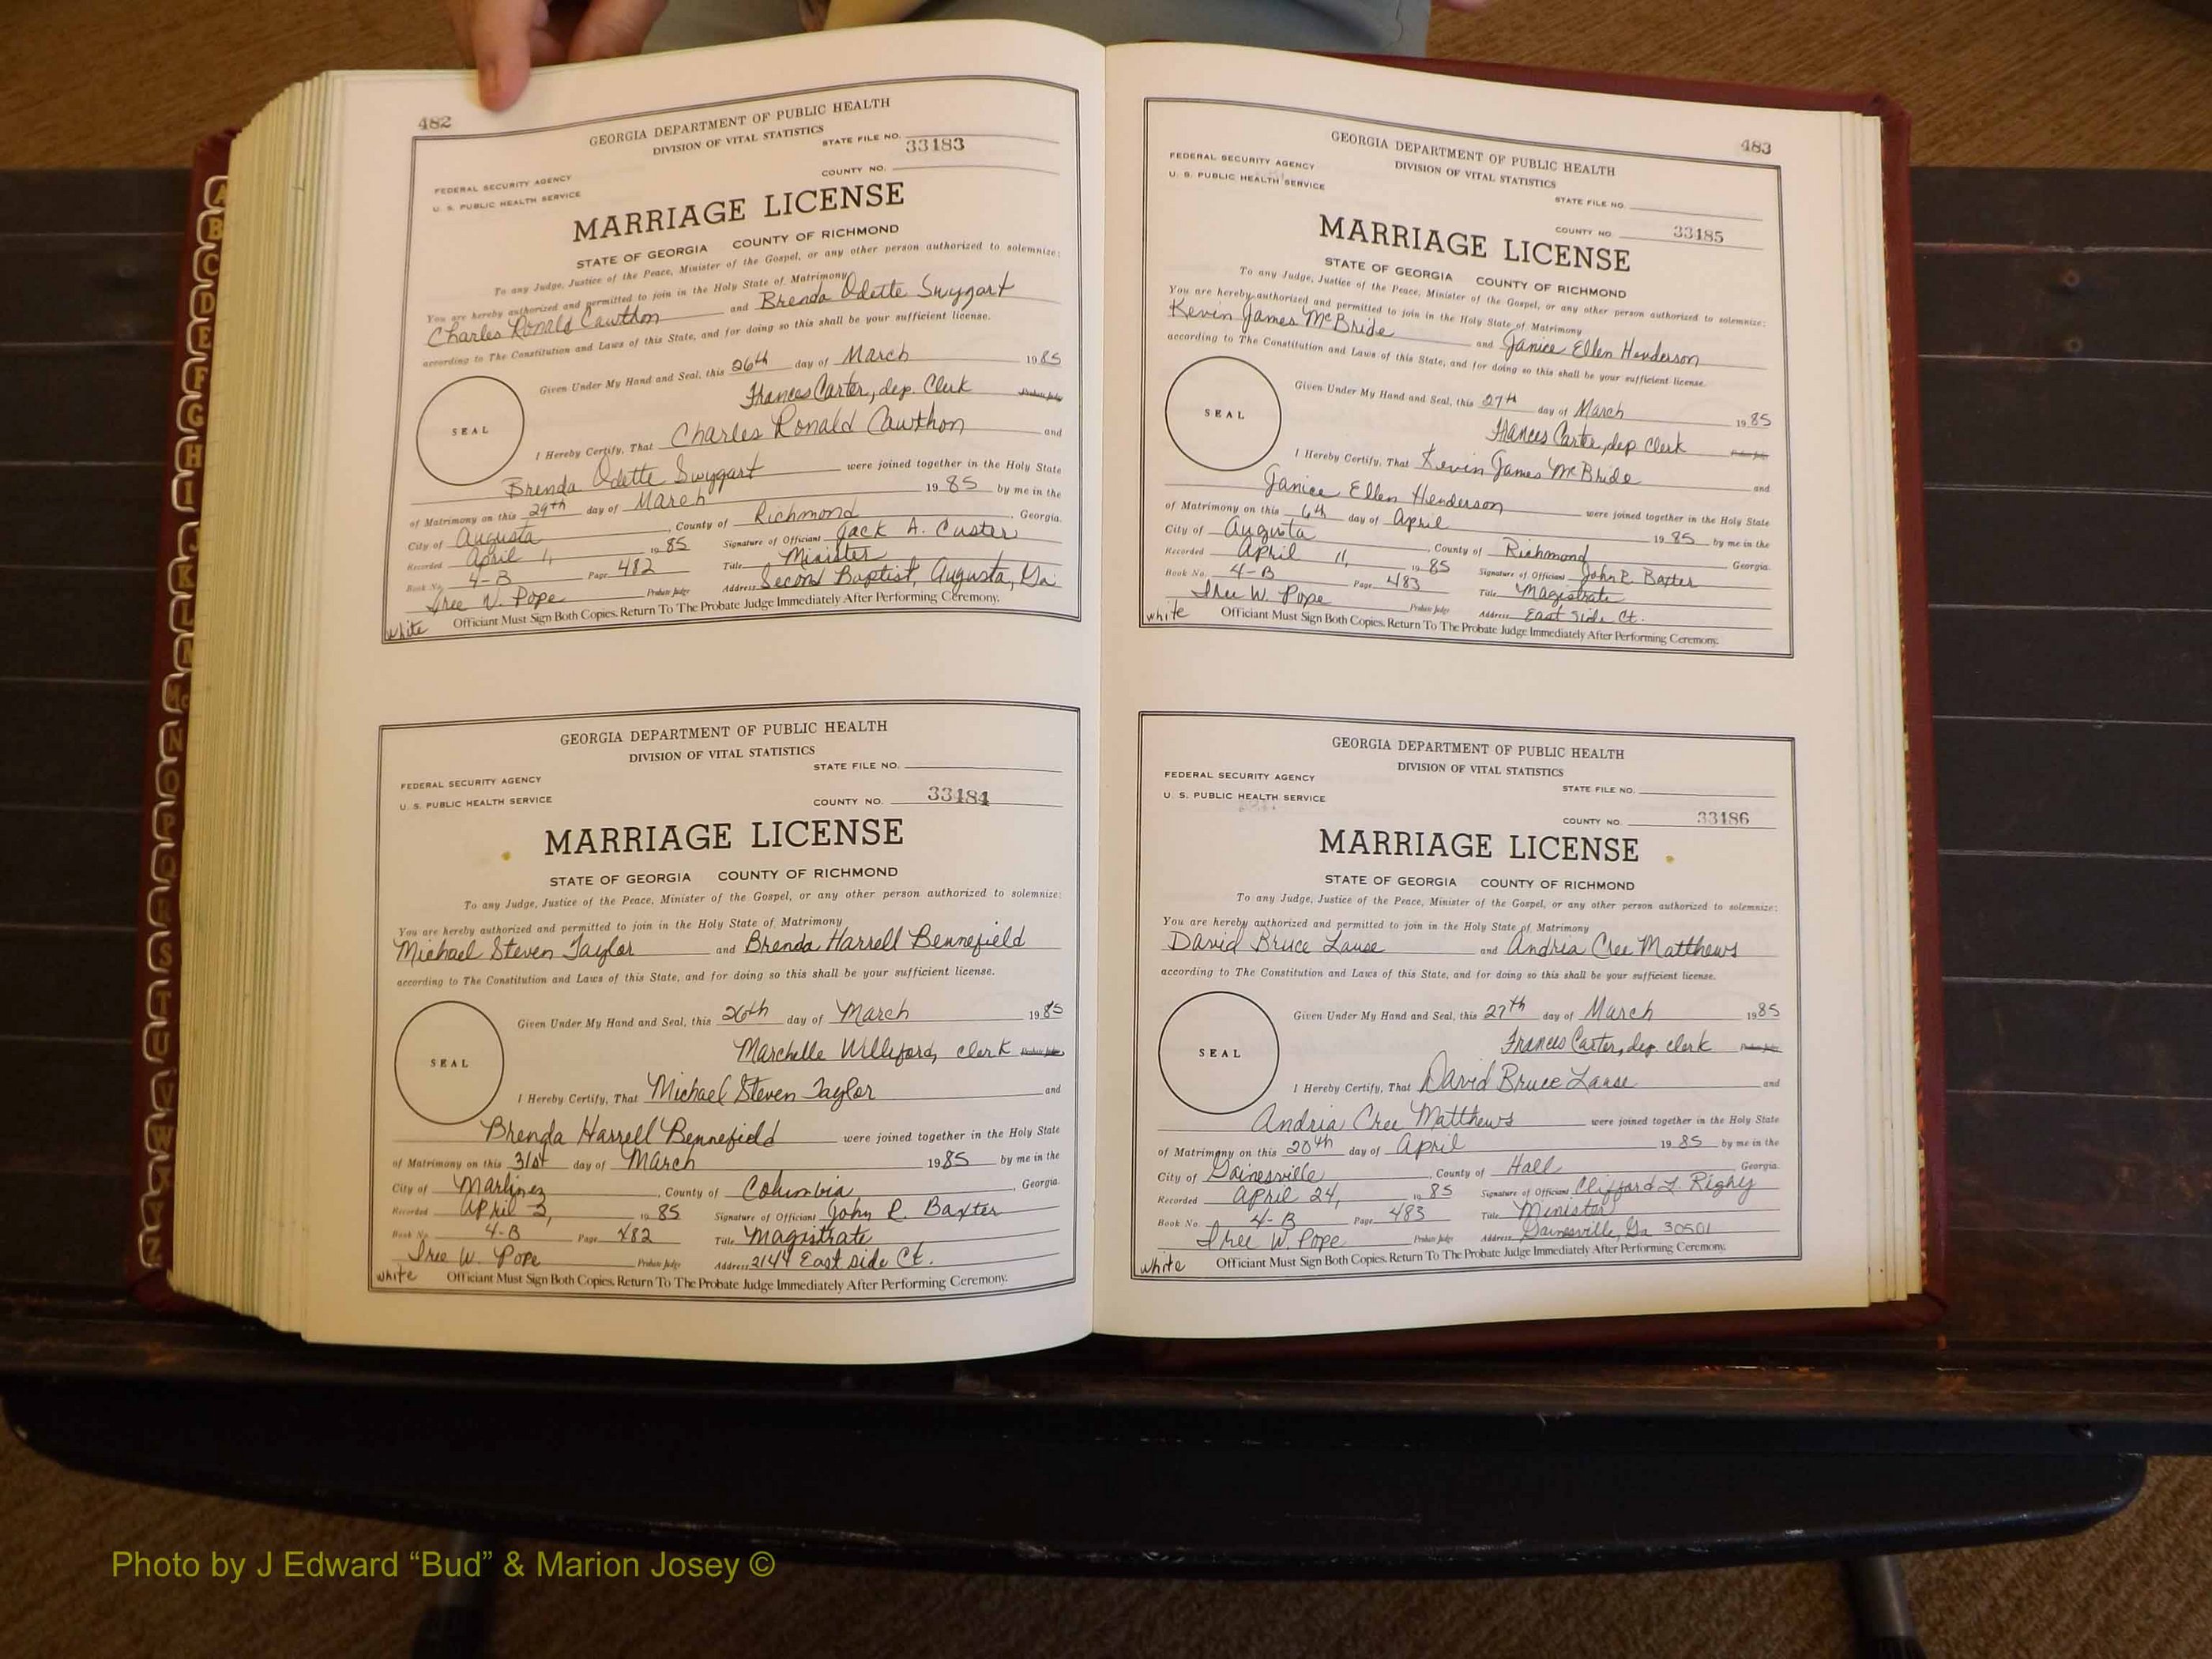 482
GEORGIA DEPARTMENT OF PUBLIC HEALTH
DIVISION OF VITAL STATISTICS
STATE FILE NO. 33183
COUNTY NO.
FEDERAL SECURITY AGENCY
U. S. PUBLIC HEALTH SERVICE
MARRIAGE LICENSE
STATE OF GEORGIA COUNTY OF RICHMOND
To any Judge, Justice of the Peace, Minister of the Gospel, or any other person authorized to solemnize:
You are hereby authorized and permitted to join in the Holy State of Matrimony
Charles Ronald Cawthon and Brenda Odette Swygart
according to The Constitution and Laws of this State, and for doing so this shall be your sufficient license.
Given Under My Hand and Seal, this 26th day of March 1985
Frances Carter, dep. Clerk Probate Judge
SEAL
I Hereby Certify, That Charles Ronald Cawthon and
Brenda Odette Swygart were joined together in the Holy State
of Matrimony on this 29th day of March 1985 by me in the
City of Augusta, County of Richmond, Georgia.
Recorded April 11, 1985 Signature of Officiant Jack A. Custer
Book No. 4-B Page 482 Title Minister
Iree W. Pope Probate Judge Address Second Baptist, Augusta, Ga
white Officiant Must Sign Both Copies. Return To The Probate Judge Immediately After Performing Ceremony.
GEORGIA DEPARTMENT OF PUBLIC HEALTH
DIVISION OF VITAL STATISTICS
STATE FILE NO.
FEDERAL SECURITY AGENCY
U. S. PUBLIC HEALTH SERVICE
COUNTY NO. 33184
MARRIAGE LICENSE
STATE OF GEORGIA COUNTY OF RICHMOND
To any Judge, Justice of the Peace, Minister of the Gospel, or any other person authorized to solemnize:
You are hereby authorized and permitted to join in the Holy State of Matrimony
Michael Steven Taylor and Brenda Harrell Bennefield
according to The Constitution and Laws of this State, and for doing so this shall be your sufficient license.
Given Under My Hand and Seal, this 26th day of March 1985
Marchelle Williford, clerk Probate Judge
SEAL
I Hereby Certify, That Michael Steven Taylor and
Brenda Harrell Bennefield were joined together in the Holy State
of Matrimony on this 31st day of March 1985 by me in the
City of Martinez, County of Columbia, Georgia.
Recorded April 3, 1985 Signature of Officiant John R. Baxter
Book No. 4-B Page 482 Title Magistrate
Iree W. Pope Probate Judge Address 2144 East side Ct.
white Officiant Must Sign Both Copies. Return To The Probate Judge Immediately After Performing Ceremony.
483
GEORGIA DEPARTMENT OF PUBLIC HEALTH
DIVISION OF VITAL STATISTICS
FEDERAL SECURITY AGENCY
U. S. PUBLIC HEALTH SERVICE
STATE FILE NO.
COUNTY NO. 33185
MARRIAGE LICENSE
STATE OF GEORGIA COUNTY OF RICHMOND
To any Judge, Justice of the Peace, Minister of the Gospel, or any other person authorized to solemnize:
You are hereby authorized and permitted to join in the Holy State of Matrimony
Kevin James McBride and Janice Ellen Henderson
according to The Constitution and Laws of this State, and for doing so this shall be your sufficient license.
Given Under My Hand and Seal, this 27th day of March 1985
Frances Carter, dep Clerk Probate Judge
SEAL
I Hereby Certify, That Kevin James McBride and
Janice Ellen Henderson were joined together in the Holy State
of Matrimony on this 6th day of April 1985 by me in the
City of Augusta, County of Richmond Georgia.
Recorded April 11, 1985 Signature of Officiant John R. Baxter
Book No. 4-B Page 483 Title Magistrate
Iree W. Pope Probate Judge Address East Side Ct.
white Officiant Must Sign Both Copies. Return To The Probate Judge Immediately After Performing Ceremony.
GEORGIA DEPARTMENT OF PUBLIC HEALTH
DIVISION OF VITAL STATISTICS
FEDERAL SECURITY AGENCY
U. S. PUBLIC HEALTH SERVICE
STATE FILE NO.
COUNTY NO. 33186
MARRIAGE LICENSE
STATE OF GEORGIA COUNTY OF RICHMOND
To any Judge, Justice of the Peace, Minister of the Gospel, or any other person authorized to solemnize:
You are hereby authorized and permitted to join in the Holy State of Matrimony
David Bruce Lause and Andria Cree Matthews
according to The Constitution and Laws of this State, and for doing so this shall be your sufficient license.
Given Under My Hand and Seal, this 27th day of March 1985
Frances Carter, dep. clerk Probate Judge
SEAL
I Hereby Certify, That David Bruce Lause and
Andria Cree Matthews were joined together in the Holy State
of Matrimony on this 20th day of April 1985 by me in the
City of Gainesville, County of Hall Georgia.
Recorded April 24, 1985 Signature of Officiant Clifford L. Righy
Book No. 4-B Page 483 Title Minister
Iree W. Pope Probate Judge Address Gainesville, Ga 30501
white Officiant Must Sign Both Copies. Return To The Probate Judge Immediately After Performing Ceremony.
A
B
C
D
E
F
G
H
I
J
K
L
M
Mc
N
O
P
Q
R
S
T
U
V
W
Y
Z
Photo by J Edward “Bud” & Marion Josey ©